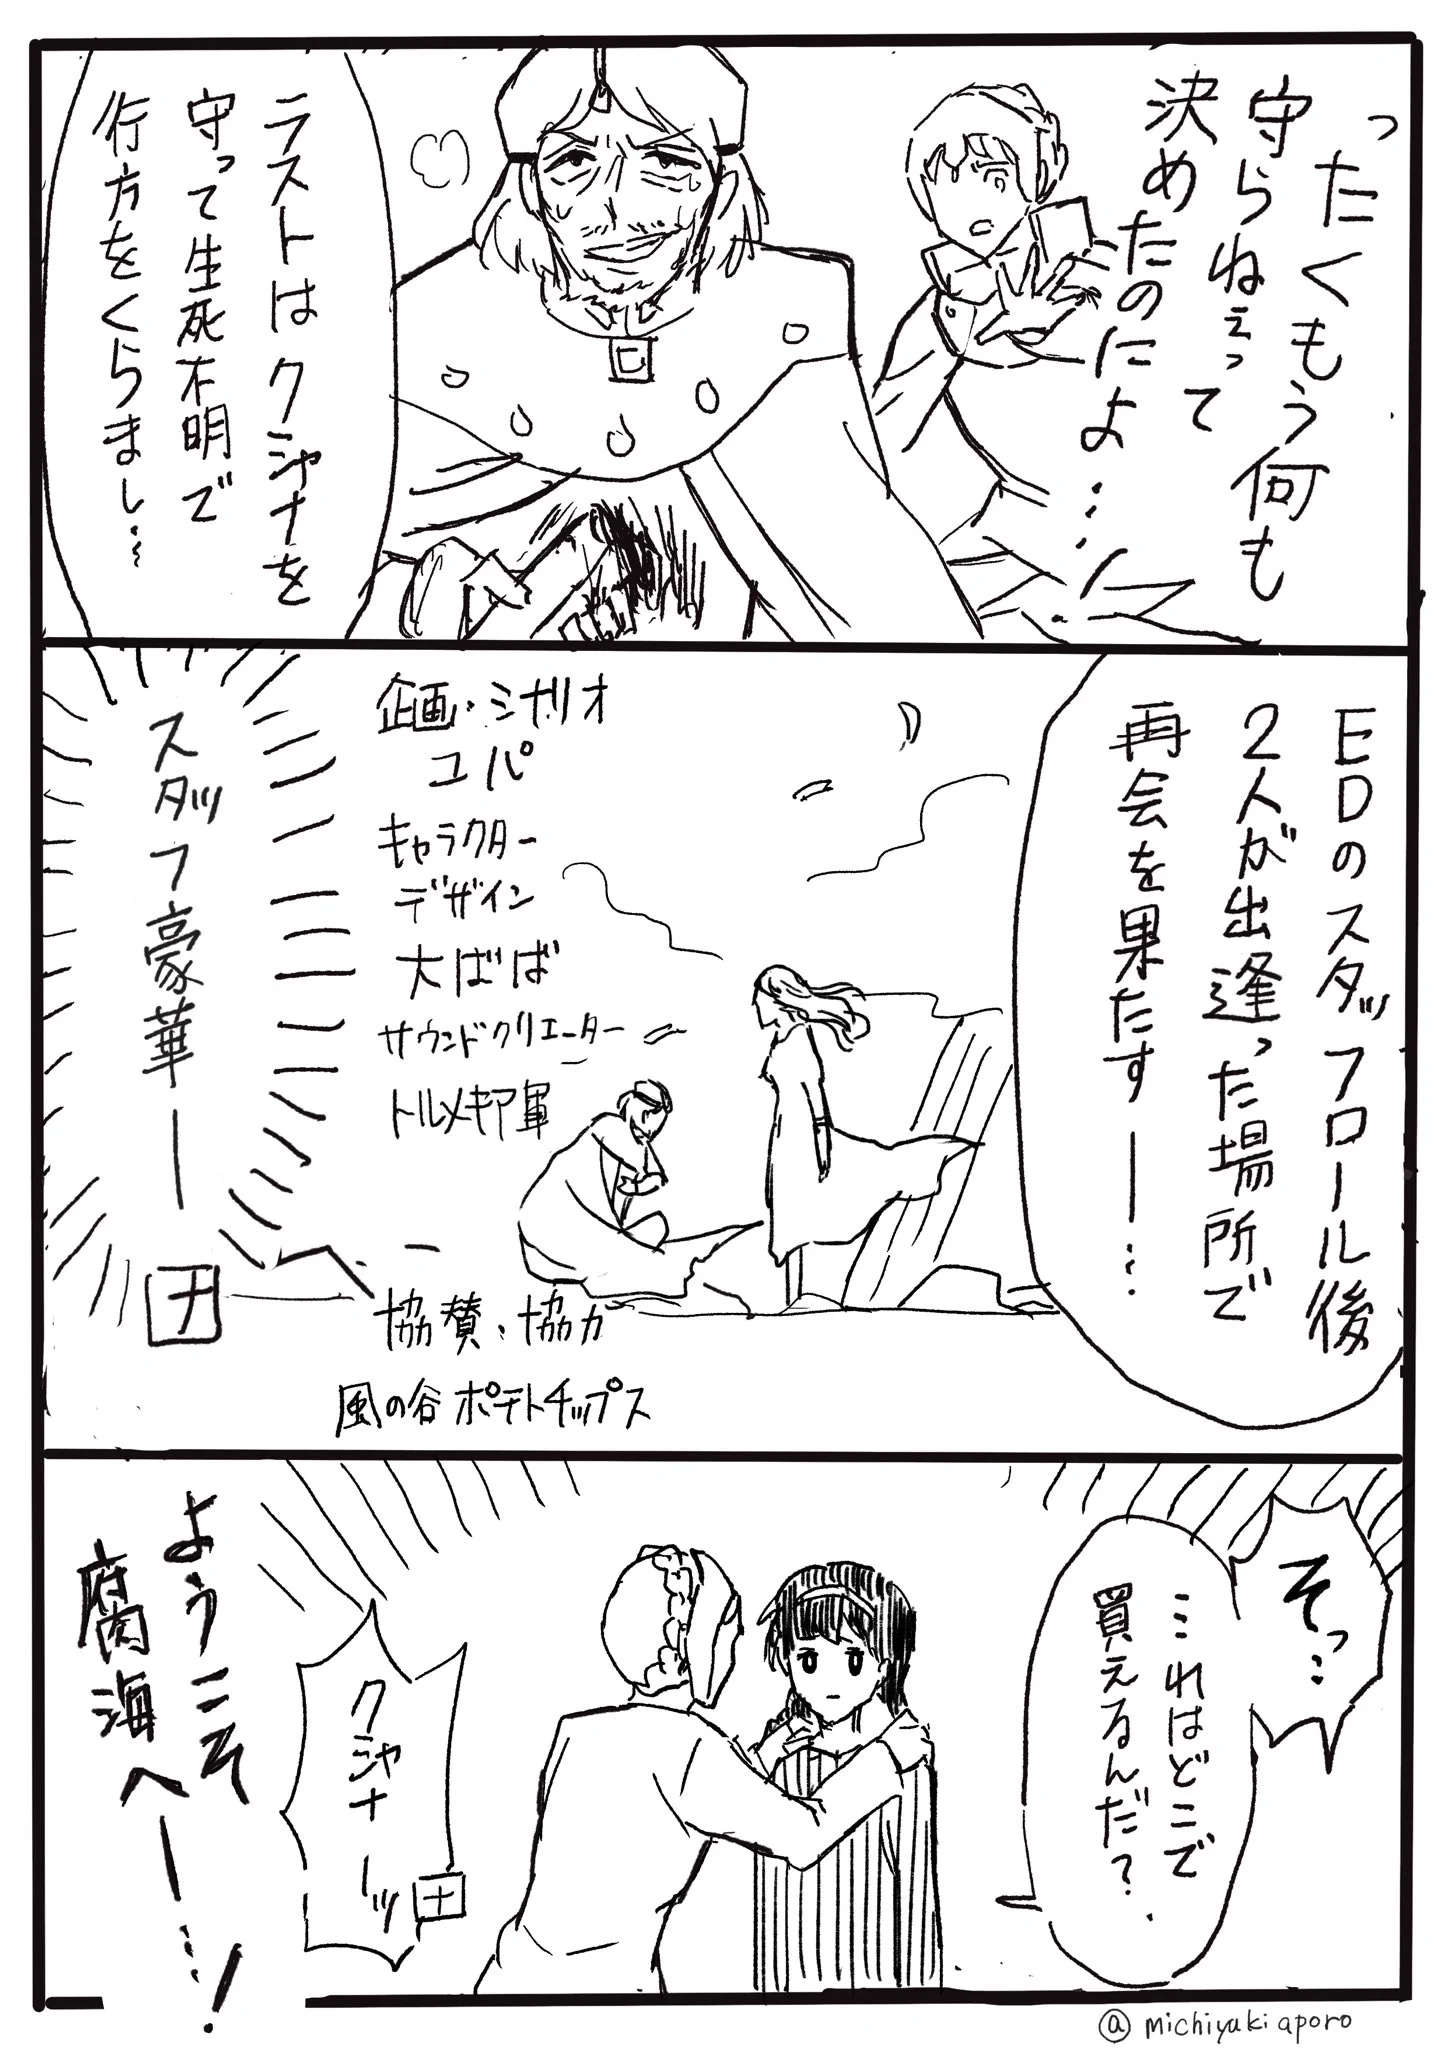 ったくもう何も
守らねぇって
決めたのによ…
ラストはクシャナを
守って生死不明で
行方をくらまし…
EDのスタッフロール後
2人が出逢った場所で
再会を果たすー…
企画・シナリオ
ユパ
キャラクター
デザイン
大ばば
サウンドクリエーター
トルメキア軍
協賛・協力
風の谷ポテトチップス
スタッフ豪華ー
ナ
そっ…
これはどこで
買えるんだ?
クシャナーッ
ナ
ようこそ
腐海へー…!
@michiyukiaporo